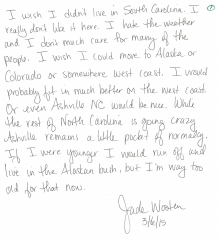 I wish I didn't live in South Carolina. I
really don't like it here. I hate the weather
and I don't much care for many of the
people. I wish I could move to Alaska, or
Colorado or somewhere west coast. I would
probably fit in much better on the west coast.
Or even Ashville NC would be nice. While
the rest of North Carolina is going crazy
Ashville remains a little pocket of normalcy.
If I were younger I would run off and
live in the Alaskan bush, but I'm way too
old for that now.
Jade Wosten
3/6/15